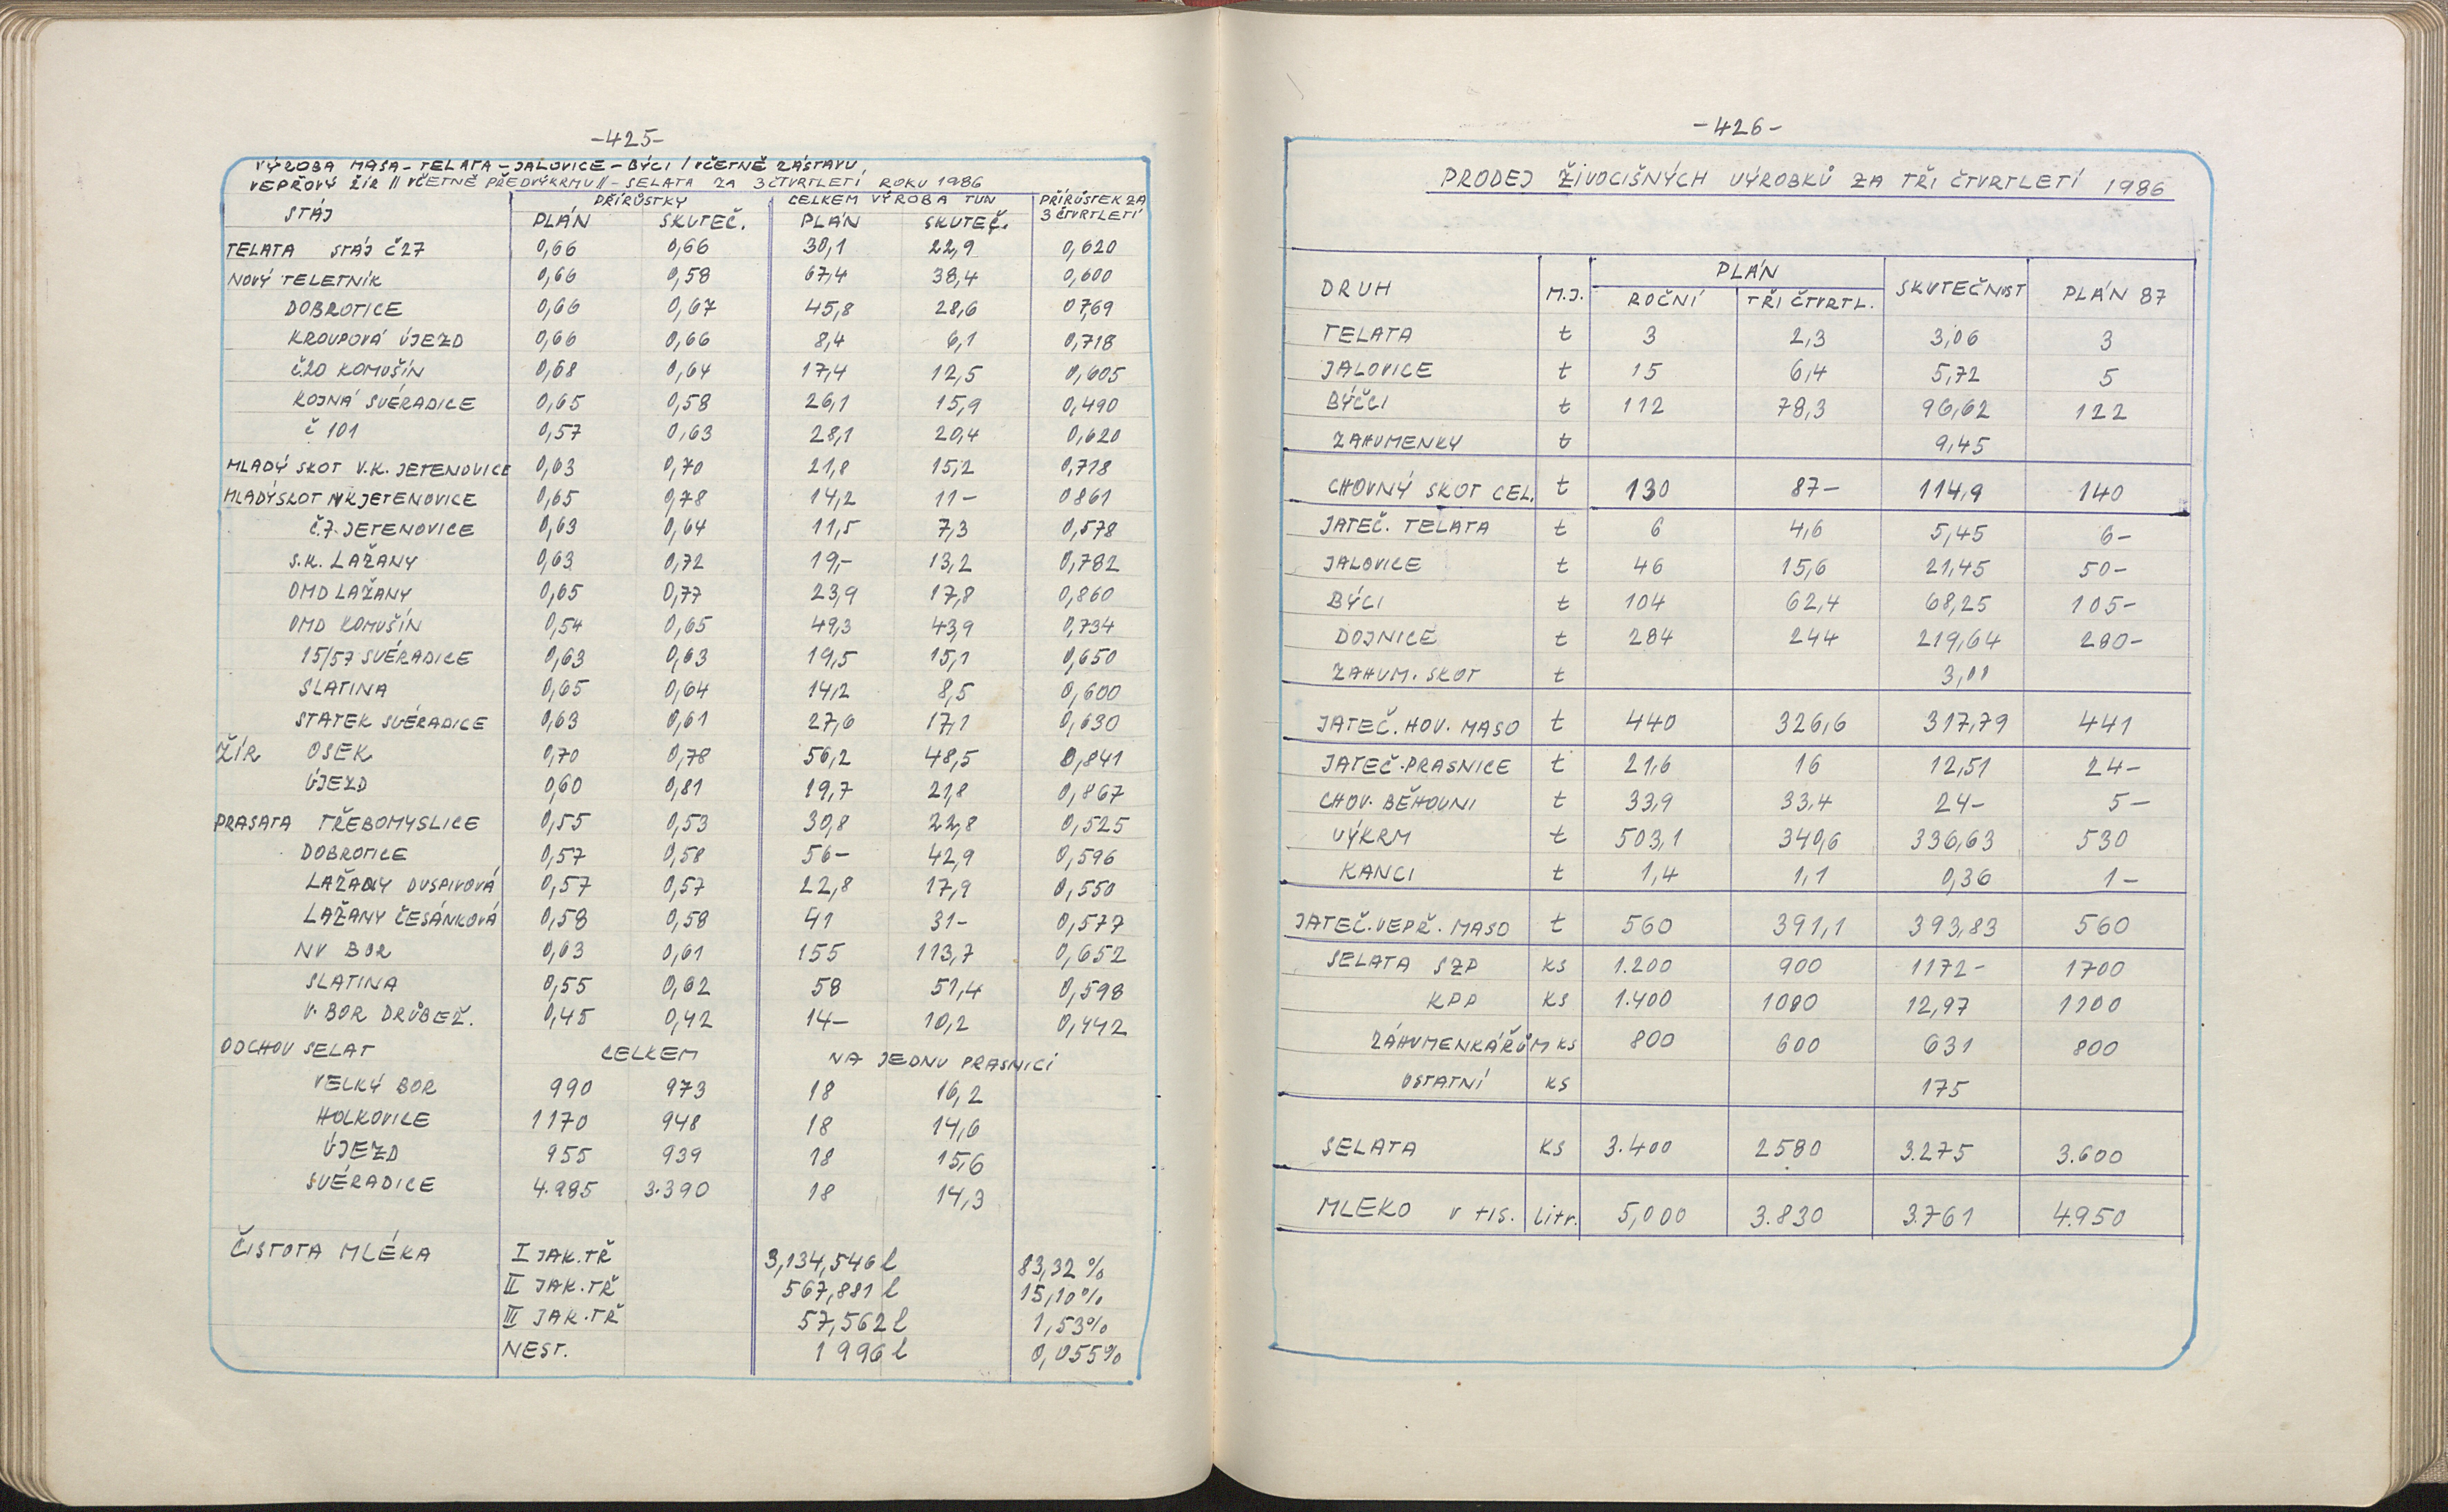 -425-
VÝROBA MASA - TELATA - JALOVICE - BÝCI / VČETNĚ ZÁSTAVU,
VEPŘOVÝ ŽÍR // VČETNĚ PŘEDVÝKRMU // - SELATA ZA 3 ČTVRTLETÍ ROKU 1986
STÁJ PŘÍRŮSTKY CELKEM VÝROBA TUN PŘÍRŮSTEK ZA 3 ČTVRTLETÍ
PLÁN SKUTEČ. PLÁN SKUTEČ.
TELATA STÁJ Č27 0,66 0,66 30,1 22,9 0,620
NOVÝ TELETNÍK 0,66 0,58 67,4 38,4 0,600
DOBROTICE 0,66 0,67 45,8 28,6 0769
KROUPOVÁ ÚJEZD 0,66 0,66 8,4 6,1 0,718
Č20 KOMUŠÍN 0,68 0,64 17,4 12,5 0,605
ROJNÁ SVÉRADICE 0,65 0,58 26,1 15,9 0,490
Č 101 0,57 0,63 28,1 20,4 0,620
MLADÝ SKOT V.K. JETENOVICE 0,63 0,70 21,8 15,2 0,718
MLADÝ SKOT NK JETENOVICE 0,65 0,78 14,2 11- 0861
Č.7. JETENOVICE 0,63 0,64 11,5 7,3 0,578
S.K. LAŽANY 0,63 0,72 19,- 13,2 0,782
OMD LAŽANY 0,65 0,77 23,9 17,8 0,860
OMD KOMUŠÍN 0,54 0,65 49,3 43,9 0,734
15/57 SVÉRADICE 0,63 0,63 19,5 15,1 0,650
SLATINA 0,65 0,64 14,2 8,5 0,600
STATEK SVÉRADICE 0,63 0,61 27,6 17,1 0,630
ŽÍR OSEK 0,70 0,78 56,2 48,5 0,841
ÚJEZD 0,60 0,81 19,7 21,8 0,867
PRASATA TŘEBOMYSLICE 0,55 0,53 30,8 22,8 0,525
DOBROTICE 0,57 0,58 56- 42,9 0,596
LAŽANY DUSPIVOVÁ 0,57 0,57 22,8 17,9 0,550
LAŽANY ČESÁNKOVÁ 0,58 0,58 41 31- 0,577
NV BOR 0,63 0,61 155 113,7 0,652
SLATINA 0,55 0,62 58 51,4 0,598
V. BOR DRŮBEŽ. 0,45 0,42 14- 10,2 0,442
ODCHOV SELAT CELKEM NA JEDNU PRASNICI
VELKÝ BOR 990 973 18 16,2
HOLKOVICE 1170 948 18 14,6
ÚJEZD 955 939 18 15,6
SVÉRADICE 4.985 3.390 18 14,3
ČISTOTA MLÉKA I JAK.TŘ 3,134,546 l 83,32 %
II JAK.TŘ 567,881 l 15,10%
III JAK.TŘ 57,562 l 1,53%
NEST. 1996 l 0,055%
-426-
PRODEJ ŽIVOCIŠNÝCH VÝROBKŮ ZA TŘI ČTVRTLETÍ 1986
DRUH M.J. PLÁN SKUTEČNOST PLÁN 87
ROČNÍ TŘI ČTVRTL.
TELATA t 3 2,3 3,06 3
JALOVICE t 15 6,4 5,72 5
BÝČCI t 112 78,3 96,62 122
ZAHUMENKY t 9,45
CHOVNÝ SKOT CEL. t 130 87- 114,9 140
JATEČ. TELATA t 6 4,6 5,45 6-
JALOVICE t 46 15,6 21,45 50-
BÝCI t 104 62,4 68,25 105-
DOJNICE t 284 244 219,64 280-
ZAHUM. SKOT t 3,01
JATEČ. HOV. MASO t 440 326,6 317,79 441
JATEČ. PRASNICE t 21,6 16 12,51 24-
CHOV. BĚHOUNI t 33,9 33,4 24- 5-
VÝKRM t 503,1 340,6 336,63 530
KANCI t 1,4 1,1 0,36 1-
JATEČ. VEPŘ. MASO t 560 391,1 393,83 560
SELATA SZP KS 1.200 900 1172- 1700
KPP KS 1.400 1080 12,97 1100
ZÁHUMENKÁŘŮM KS 800 600 631 800
OSTATNÍ KS 175
SELATA KS 3.400 2580 3.275 3.600
MLEKO V TIS. Litr. 5,000 3.830 3.761 4.950